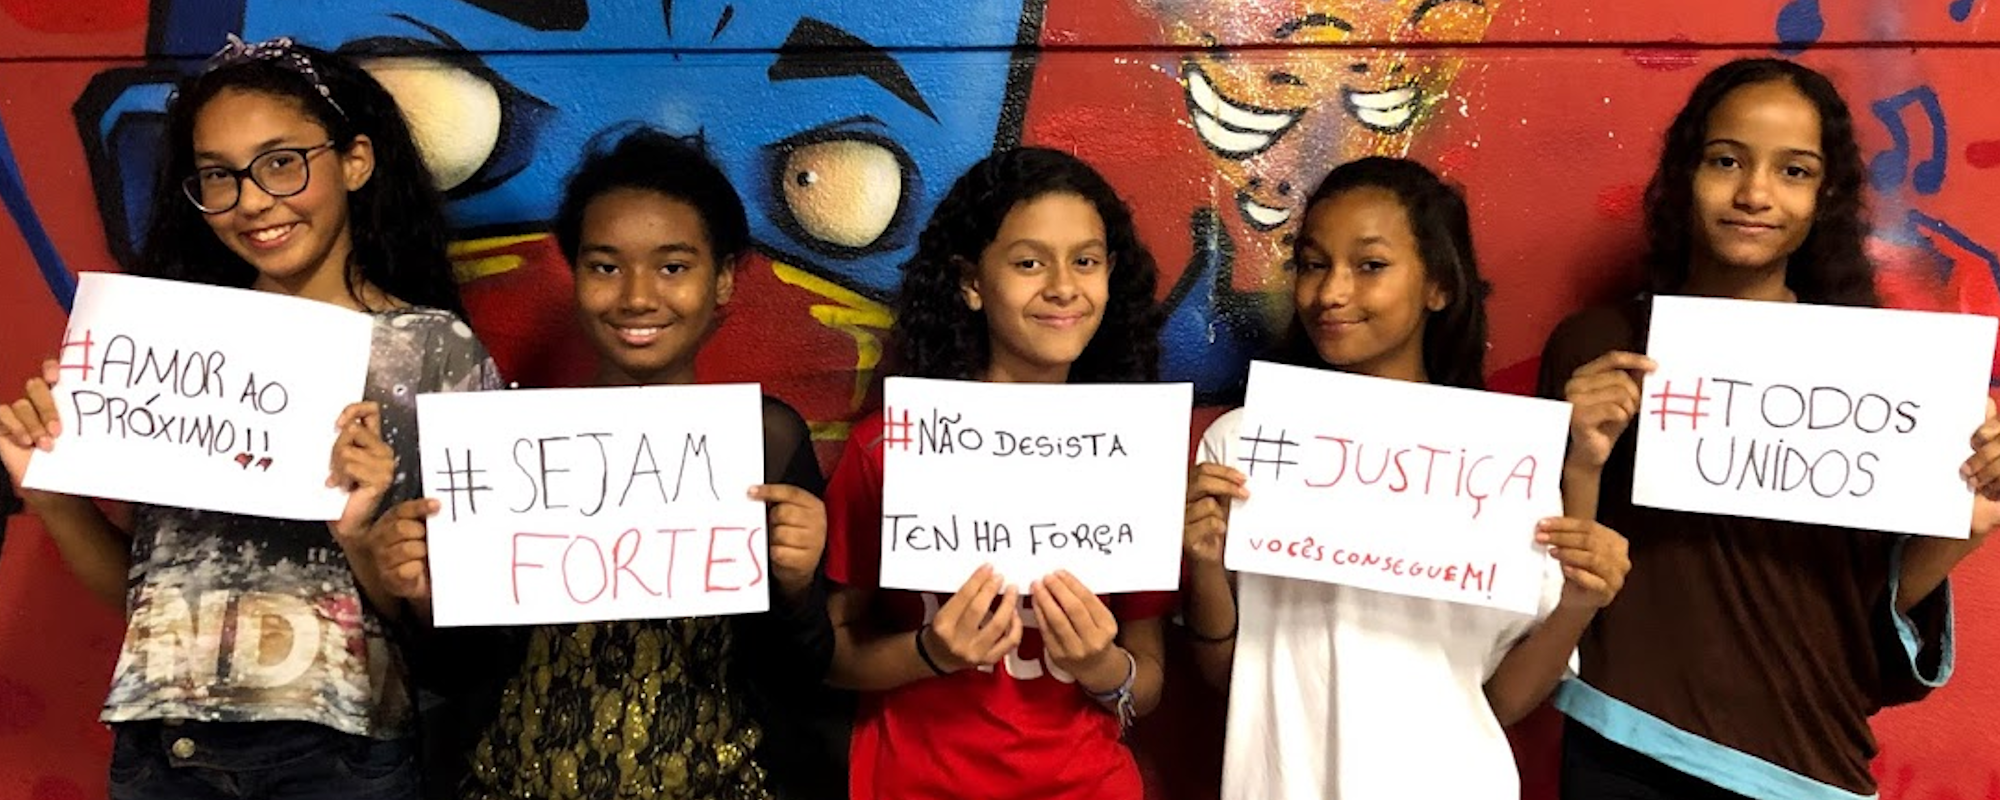 #AMOR AO
PRÓXIMO!!
#SEJAM
FORTES
#NÃO DESISTA
TENHA FORÇA
#JUSTIÇA
VOCÊS CONSEGUEM!
#TODOS
UNIDOS